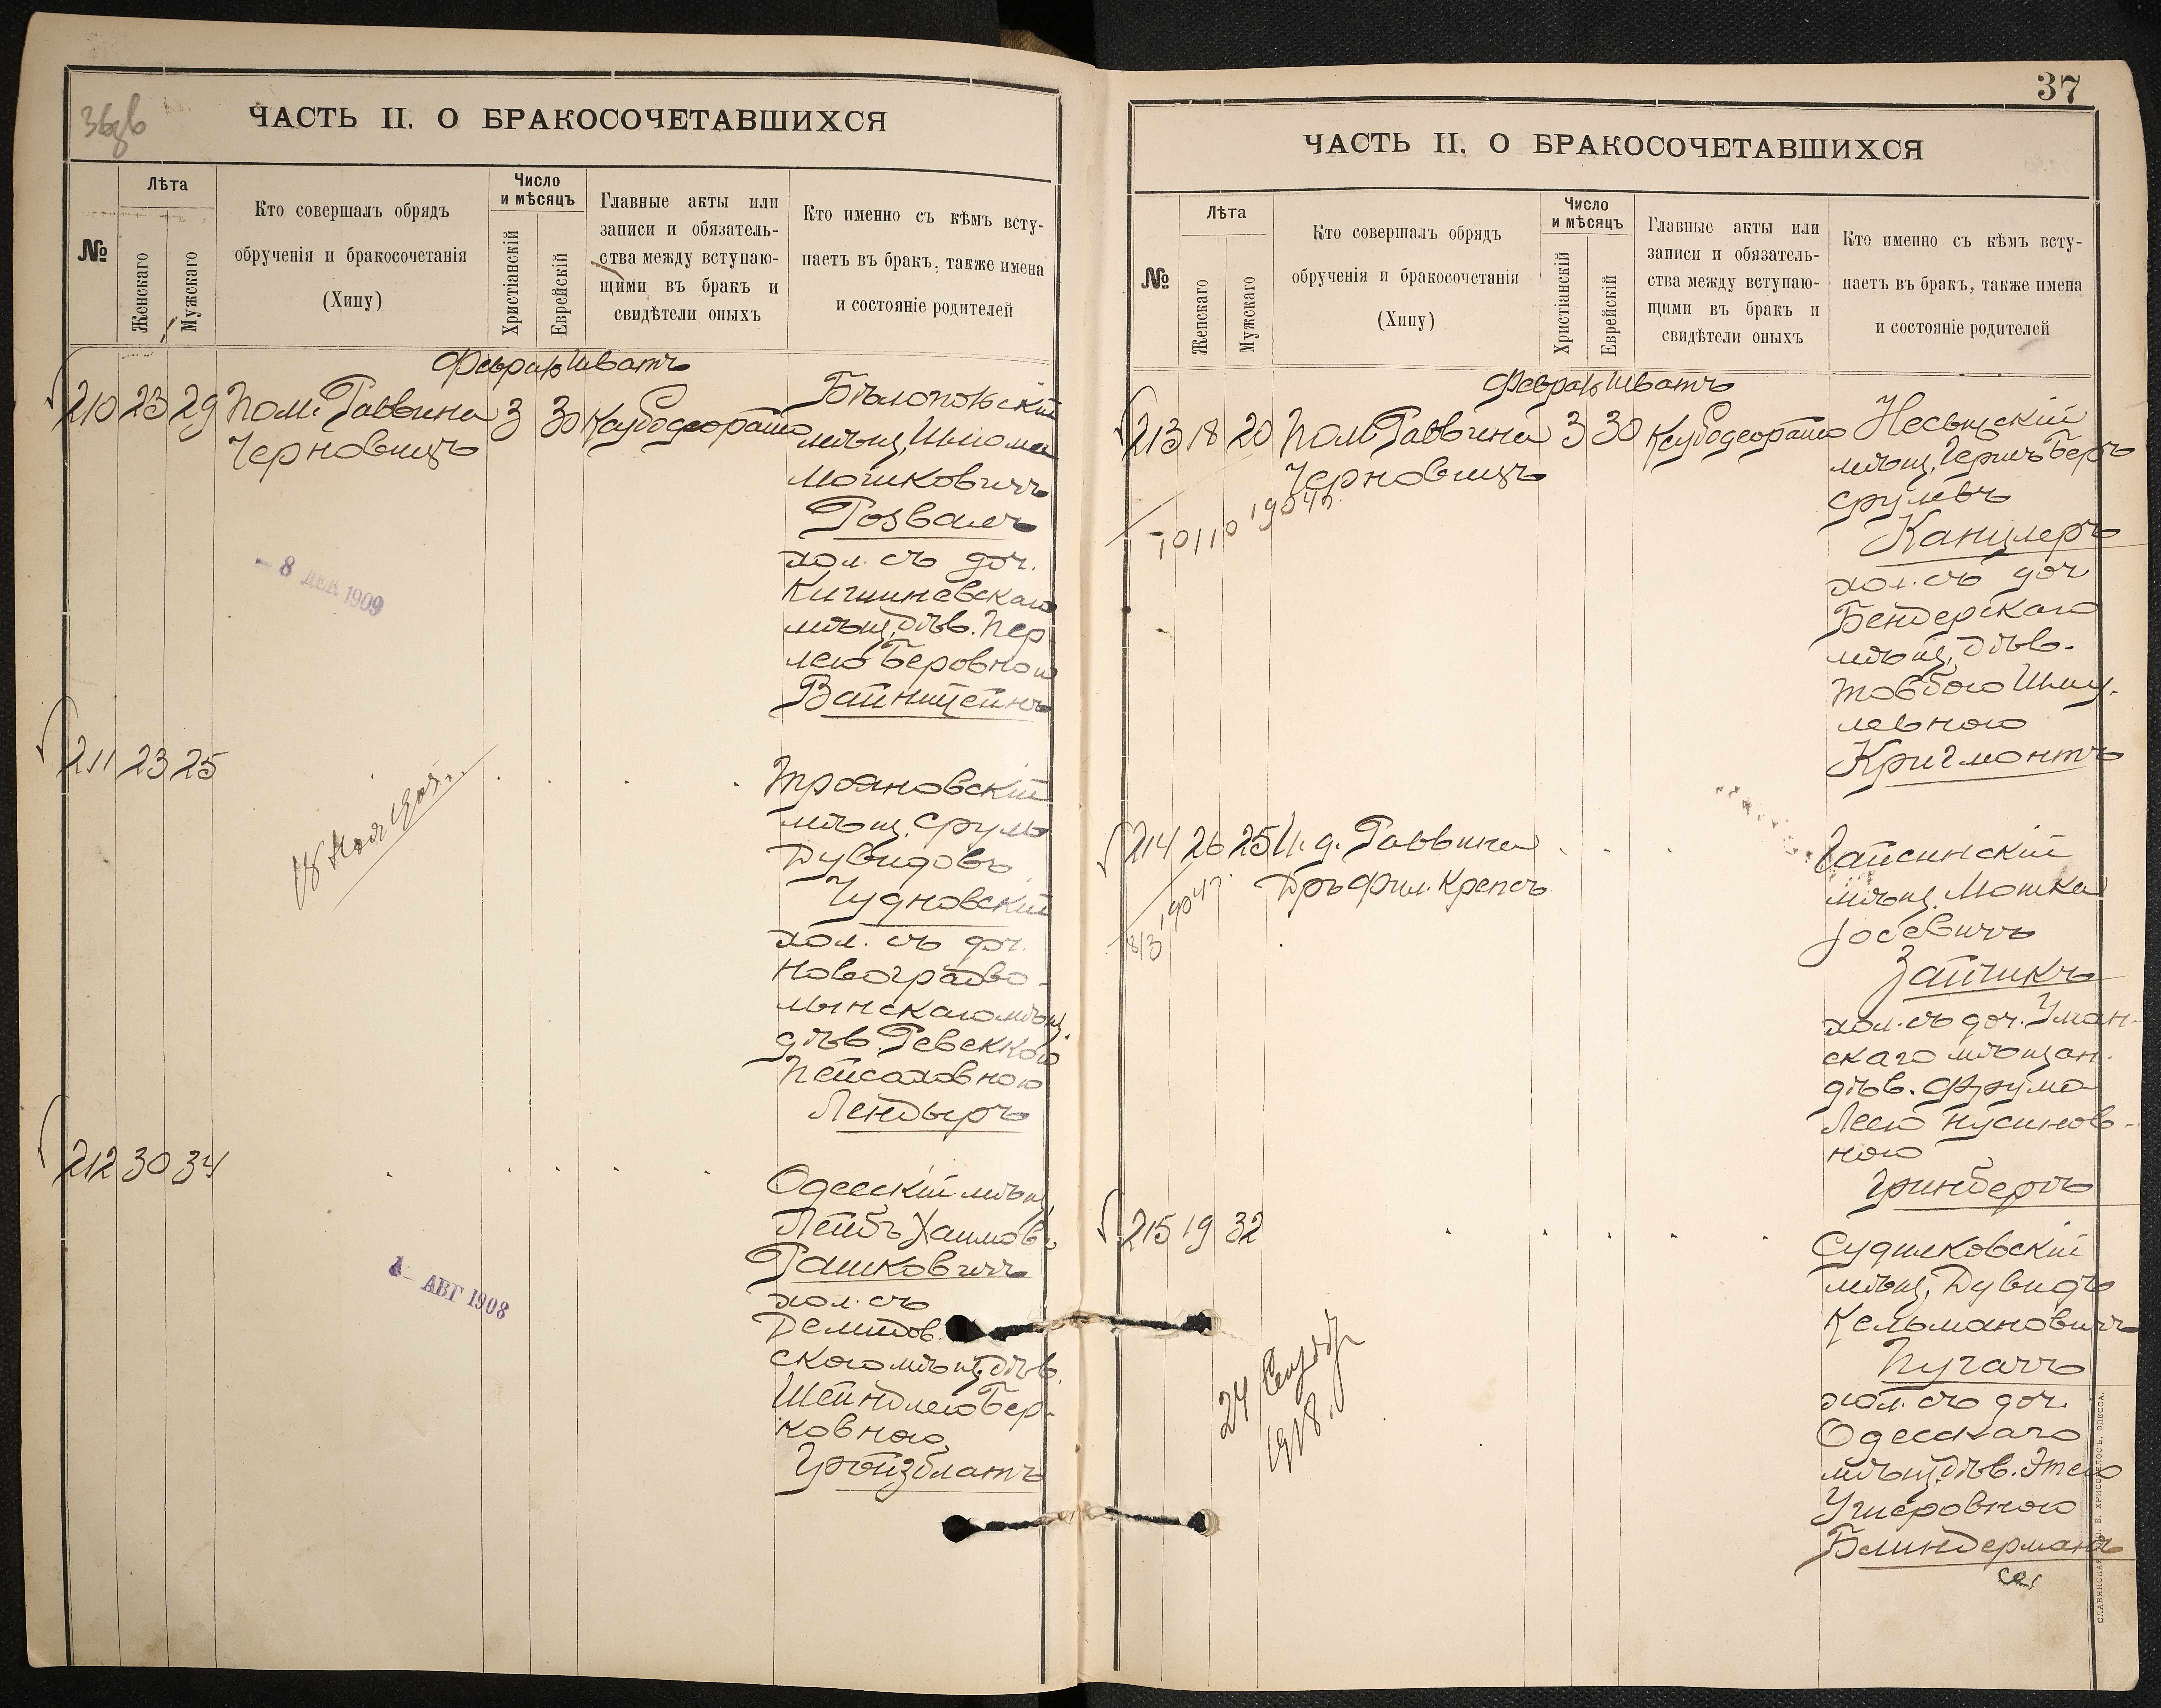 36об
ЧАСТЬ II. О БРАКОСОЧЕТАВШИХСЯ
№
Лѣта
Женскаго
Мужскаго
Кто совершалъ обрядъ
обрученія и бракосочетанія
(Хипу)
Число
и мѣсяцъ
Христіанскій
Еврейскій
Главные акты или
записи и обязатель-
ства между вступаю-
щими въ бракъ и
свидѣтели оныхъ
Кто именно съ кѣмъ всту-
паетъ въ бракъ, также имена
и состояніе родителей
Феврал Шватъ
210 23 29 Пом. Раввина 3 30
Черновицъ
Бѣлопольскій
мѣщ. Шлома
Мошковичъ
Розвалъ
хол. съ доч.
Кишиневскаго
мѣщ. дѣв. Пер
лею Беровною
Вайнштейнъ
- 8 ДЕК 1909
211 23 25
Трояновскій
мѣщ. Сруль
Дувидовъ
Чудновскій
хол. съ доч.
Новоградво-
лынскаго мѣщ.
дѣв. Ревеккою
Пейсаховною
Лендыръ
212 30 34
Одесскій мѣщ.
Лейбъ Хаимов.
Рашковичъ
хол. съ
Демидов.
скаго мѣщ. дѣв.
Шейндлею Бер-
ковною
Гройзблатъ
1 - АВГ 1908
37
ЧАСТЬ II. О БРАКОСОЧЕТАВШИХСЯ
№
Лѣта
Женскаго
Мужскаго
Кто совершалъ обрядъ
обрученія и бракосочетанія
(Хипу)
Число
и мѣсяцъ
Христіанскій
Еврейскій
Главные акты или
записи и обязатель-
ства между вступаю-
щими въ бракъ и
свидѣтели оныхъ
Кто именно съ кѣмъ всту-
паетъ въ бракъ, также имена
и состояніе родителей
Феврал Шватъ
213 18 20 Пом. Раввина 3 30
Черновицъ
10/10 1904 г.
мѣщ. Гершъ Беръ
Срулевъ
Канцлеръ
хол. съ доч
Бендерскаго
мѣщ. дѣв.
Товбою Шму-
левною
Кригмонтъ
214 26 25 И. д. Раввина
Дръ Фил. Крепсъ
8/3 1904 г.
Гайсинскій
мѣщ. Мошка
Іосевичъ
Зайчикъ
хол. съ доч. Уман-
скаго мѣщан.
дѣв. Фрума
Леею Нусинов-
ною
Гринбергъ
215 19 32
Судилковскій
мѣщ. Дувидъ
Кельмановичъ
Пугачъ
хол. съ доч.
Одесскаго
мѣщ. дѣв. Этею
Ушеровною
Блиндерманъ
24
1918.
СЛАВЯНСКАЯ ТИП. Е. ХРИСОГЕЛОСЪ, ОДЕССА.